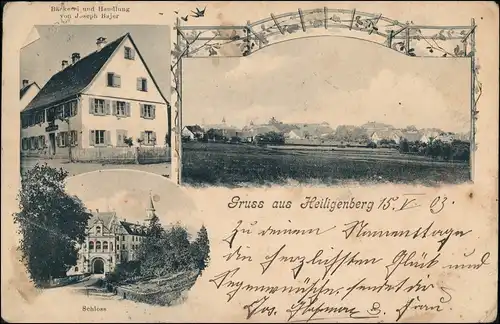 Bäckerei und Handlung
von Joseph Bejer
Gruss aus Heiligenberg 15. V 03.
Zu deinem Namenstage
die herzlichsten Glück und
Segenwünsche sendet dir
Jos. u. Frau
Schloss